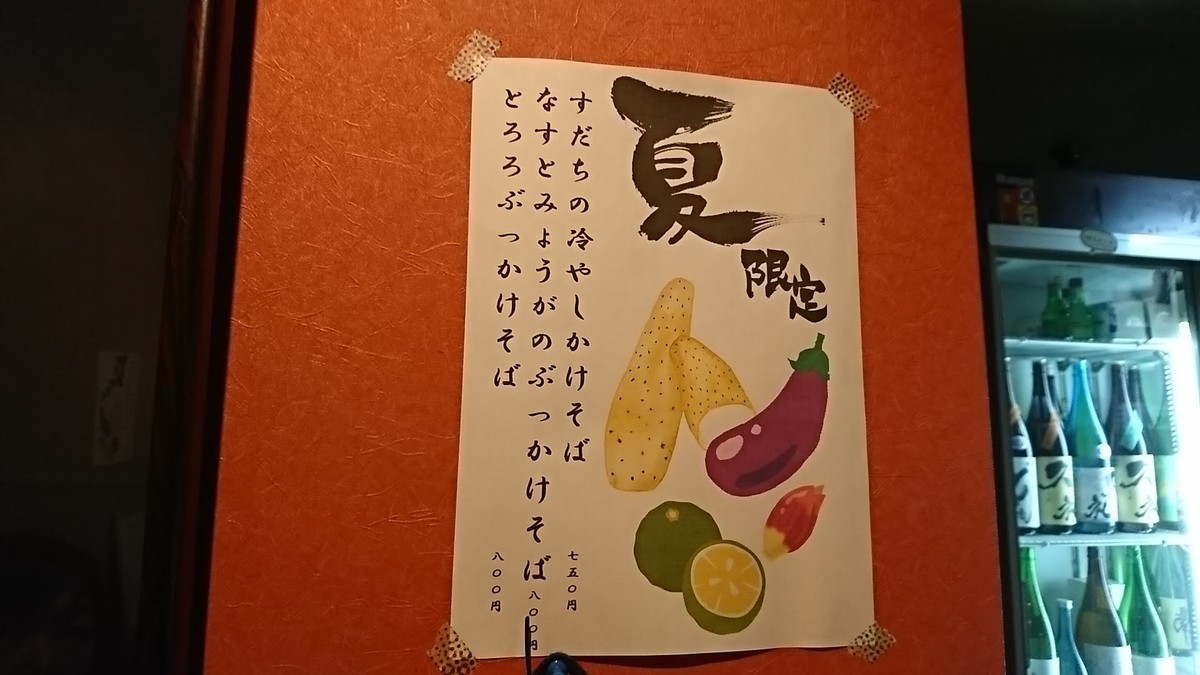 夏
限定
すだちの冷やしかけそば 七五〇円
なすとみょうがのぶっかけそば 八〇〇円
とろろぶっかけそば 八〇〇円